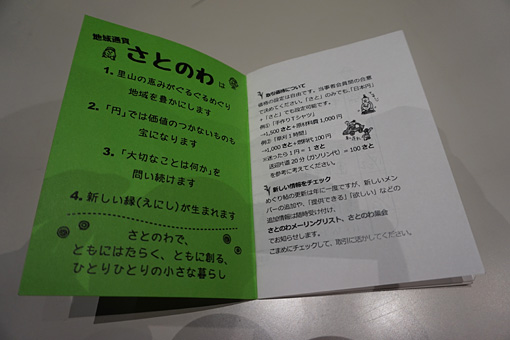 地域通貨
さとのわ は
1. 里山の恵みがぐるぐるめぐり
地域を豊かにします
2. 「円」では価値のつかないものも
宝になります
3. 「大切なことは何か」を
問い続けます
4. 新しい縁(えにし)が生まれます
さとのわで、
ともにはたらく、ともに創る、
ひとりひとりの小さな暮らし
取引価格について
価格の設定は自由です。当事者会員間の合意
で決めてください。「さと」のみでも、「日本円」
+「さと」でも設定可能です。
例①「手作りTシャツ」
→1,500さと+原材料費1,000円
例②「草刈1時間」
→1,000さと+燃料代100円
※迷ったら1円=1さと
送迎片道20分(ガソリン代)=100さと
を参考に考えてください。
新しい情報をチェック
めぐり帖の更新は年に一度ですが、新しいメン
バーの追加や、「提供できる」「欲しい」などの
追加情報は随時受け付け、
さとのわメーリングリスト、さとのわ協会
でお知らせします。
こまめにチェックして、取引に活かしてください。